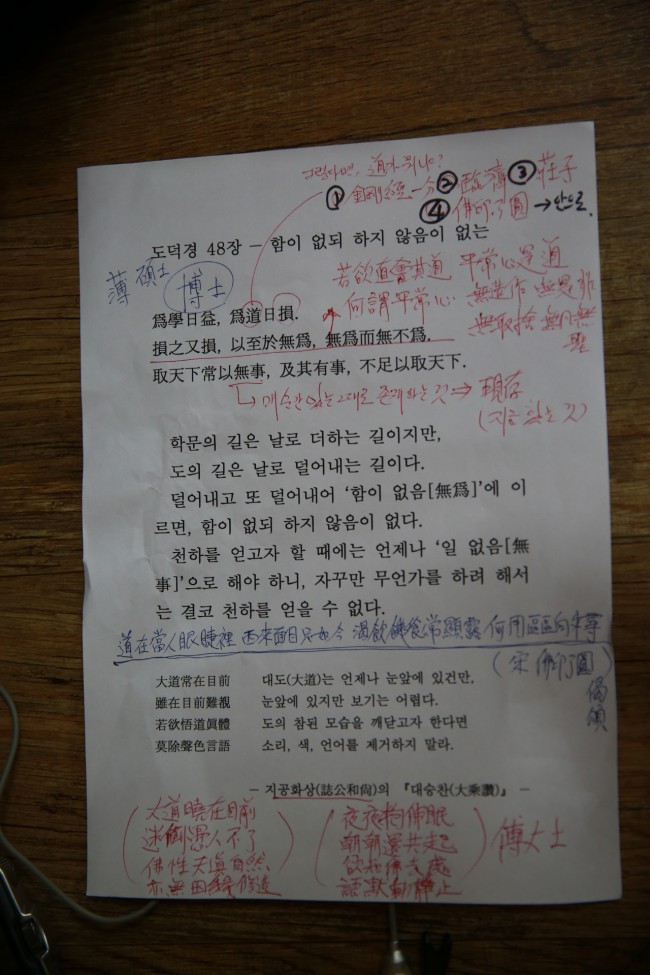 그렇다면, 道가 뭐냐?
① 金剛經 一分 ② 臨濟 ③ 莊子
④ 佛印了圓 → 안으로.
도덕경 48장 - 함이 없되 하지 않음이 없는
薄 碩士 博士
若欲直會其道 平常心是道
何謂平常心 無造作 無是非
無取捨 無凡無
聖
爲學日益, 爲道日損.
損之又損, 以至於無爲, 無爲而無不爲.
取天下常以無事, 及其有事, 不足以取天下.
매순간 있는 그대로 존재하는 것 ⇒ 現存
(지금 있는 것)
학문의 길은 날로 더하는 길이지만,
도의 길은 날로 덜어내는 길이다.
덜어내고 또 덜어내어 ‘함이 없음[無爲]’에 이
르면, 함이 없되 하지 않음이 없다.
천하를 얻고자 할 때에는 언제나 ‘일 없음[無
事]’으로 해야 하니, 자꾸만 무언가를 하려 해서
는 결코 천하를 얻을 수 없다.
道在當人眼睫裡 西來面目只如今 渴飮飢食常顯露 何用區區向外尋
(宋 佛印了圓)
偈頌
大道常在目前 대도(大道)는 언제나 눈앞에 있건만,
雖在目前難覩 눈앞에 있지만 보기는 어렵다.
若欲悟道眞體 도의 참된 모습을 깨닫고자 한다면
莫除聲色言語 소리, 색, 언어를 제거하지 말라.
- 지공화상(誌公和尙)의 『대승찬(大乘讚)』 -
(大道曉在目前
迷倒愚人不了
佛性天眞自然
亦無因緣修造)
(夜夜抱佛眠
朝朝還共起
欲知佛去處
語默動靜止) 傅大士